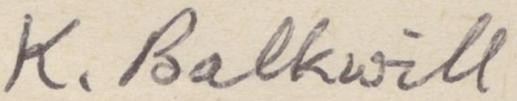 K. Balkwill